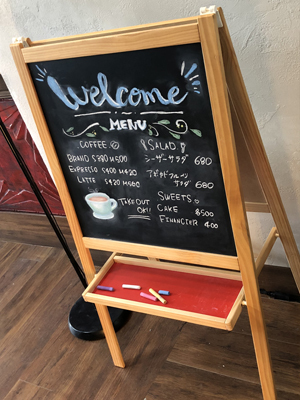 Welcome
MENU
COFFEE
BRAND S380 M500
ESPRESSO S400 M420
LATTE S420 M560
TAKE OUT OK!!
SALAD
シーザーサラダ 680
サラダ 680
SWEETS
CAKE ¥500
FINANCIER 400